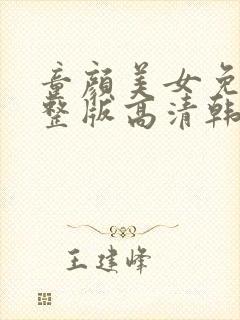 童颜美女免
整版高清韩
王建峰